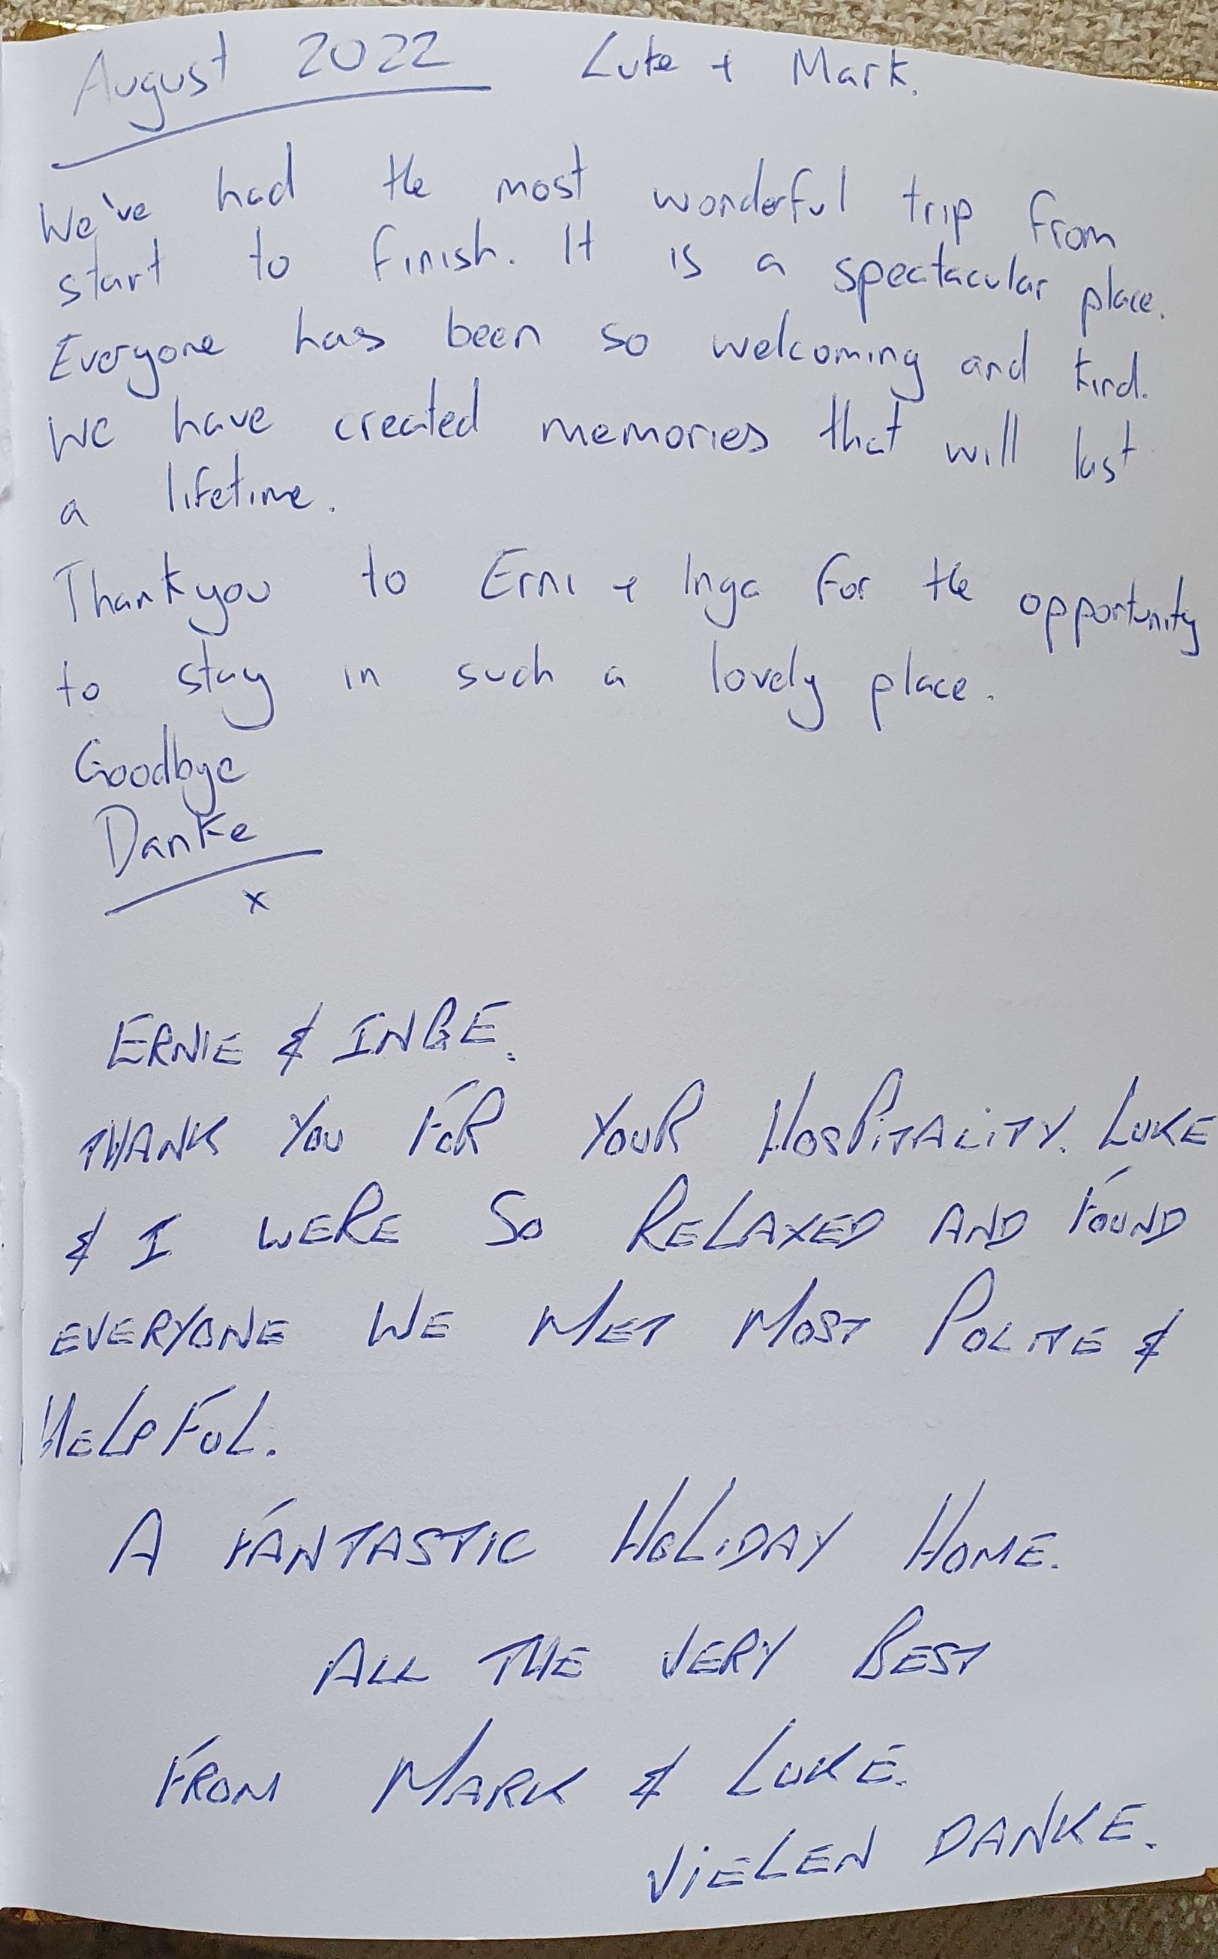 August 2022 Luke + Mark.
We've had the most wonderful trip from
start to finish. It is a spectacular place.
Everyone has been so welcoming and kind.
We have created memories that will last
a lifetime.
Thankyou to Erni + Inga for the opportunity
to stay in such a lovely place.
Goodbye
Danke
x
ERNIE & INGE.
THANK YOU FOR YOUR HOSPITALITY. LUKE
& I WERE SO RELAXED AND FOUND
EVERYONE WE MET MOST POLITE &
HELPFUL.
A FANTASTIC HOLIDAY HOME.
ALL THE VERY BEST
FROM MARK & LUKE.
VIELEN DANKE.